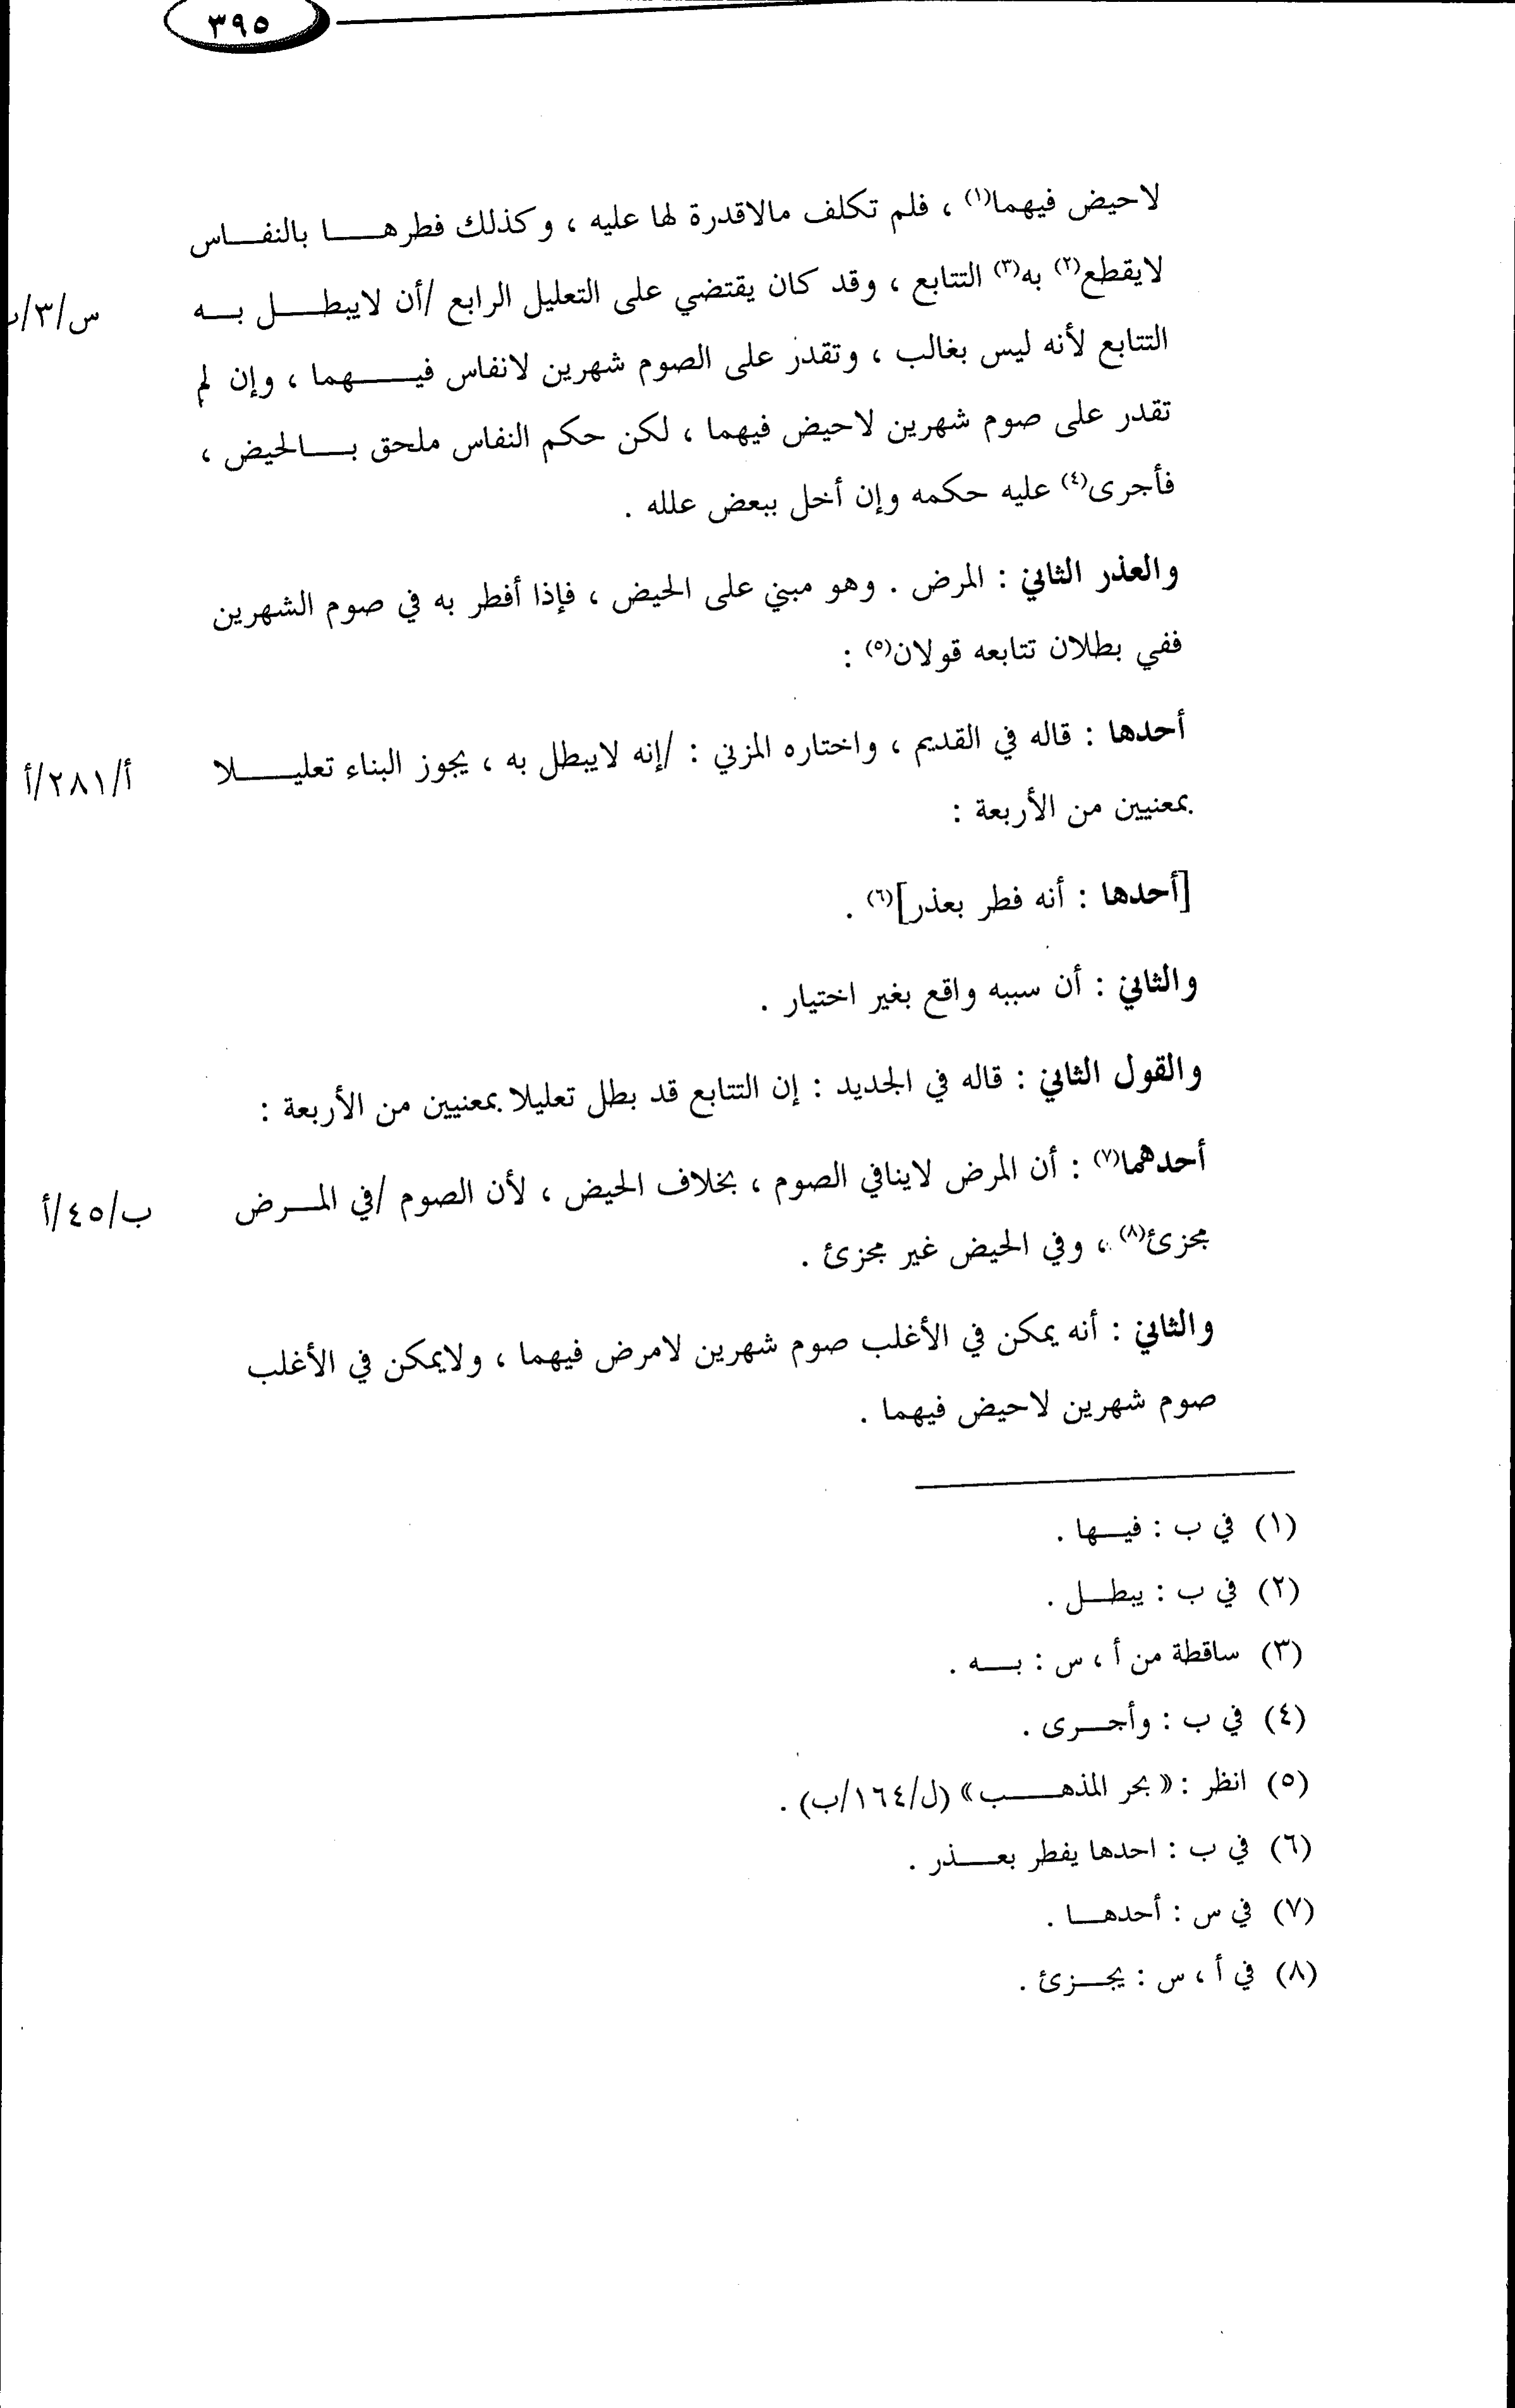 ٣٩٥
لاحيض فيهما(١) ، فلم تكلف مالاقدرة لها عليه ، وكذلك فطرها بالنفاس
لايقطع(٢) به(٣) التتابع ، وقد كان يقتضي على التعليل الرابع /أن لايبطل به
س/٣/
التتابع لأنه ليس بغالب ، وتقدر على الصوم شهرين لانفاس فيهما ، وإن لم
تقدر على صوم شهرين لاحيض فيهما ، لكن حكم النفاس ملحق بالحيض ،
فأجرى(٤) عليه حكمه وإن أخل ببعض علله .
والعذر الثاني : المرض . وهو مبني على الحيض ، فإذا أفطر به في صوم الشهرين
ففي بطلان تتابعه قولان(٥) :
أحدها : قاله في القديم ، واختاره المزني : /إنه لايبطل به ، يجوز البناء تعليلا
أ/٢٨١/أ
بمعنيين من الأربعة :
[أحدها : أنه فطر بعذر](٦) .
والثاني : أن سببه واقع بغير اختيار .
والقول الثاني : قاله في الجديد : إن التتابع قد بطل تعليلا بمعنيين من الأربعة :
أحدهما(٧) : أن المرض لاينافي الصوم ، بخلاف الحيض ، لأن الصوم /في المرض
ب/٤٥/أ
مجزئ(٨) ، وفي الحيض غير مجزئ .
والثاني : أنه يمكن في الأغلب صوم شهرين لامرض فيهما ، ولايمكن في الأغلب
صوم شهرين لاحيض فيهما .
(١) في ب : فيها .
(٢) في ب : يبطل .
(٣) ساقطة من أ ، س : به .
(٤) في ب : وأجرى .
(٥) انظر : « بحر المذهب » (ل/١٦٤/ب) .
(٦) في ب : احدها يفطر بعذر .
(٧) في س : أحدها .
(٨) في أ ، س : يجزئ .